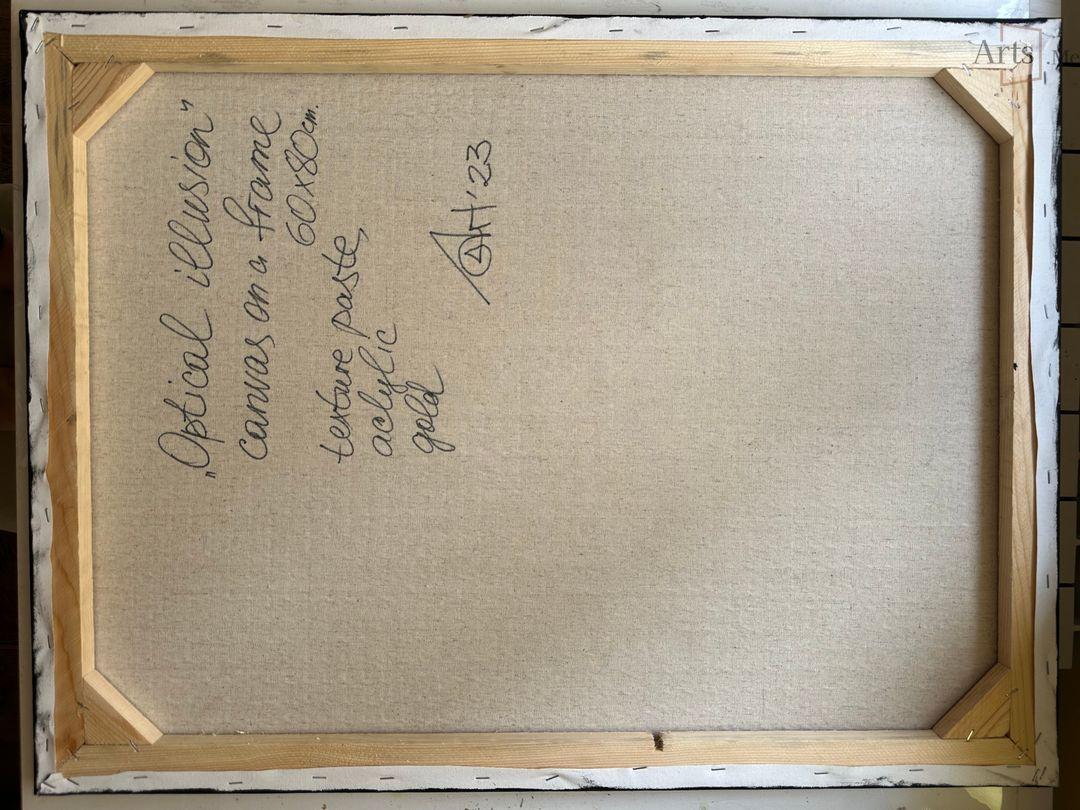 „Optical illusion”
canvas on a frame
60x80cm.
texture paste,
aclylic
gold
Art'23
Arts